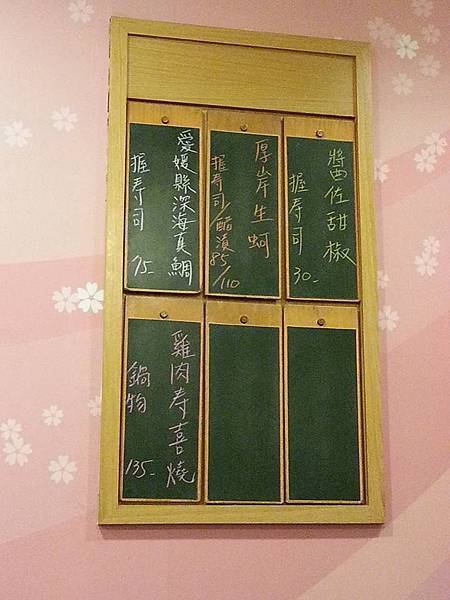 醬佐甜椒
握寿司
30-
厚岸生蚵
握寿司/醋漬
85/110
愛媛縣深海真鯛
握寿司
75-
雞肉寿喜燒
鍋物
135-